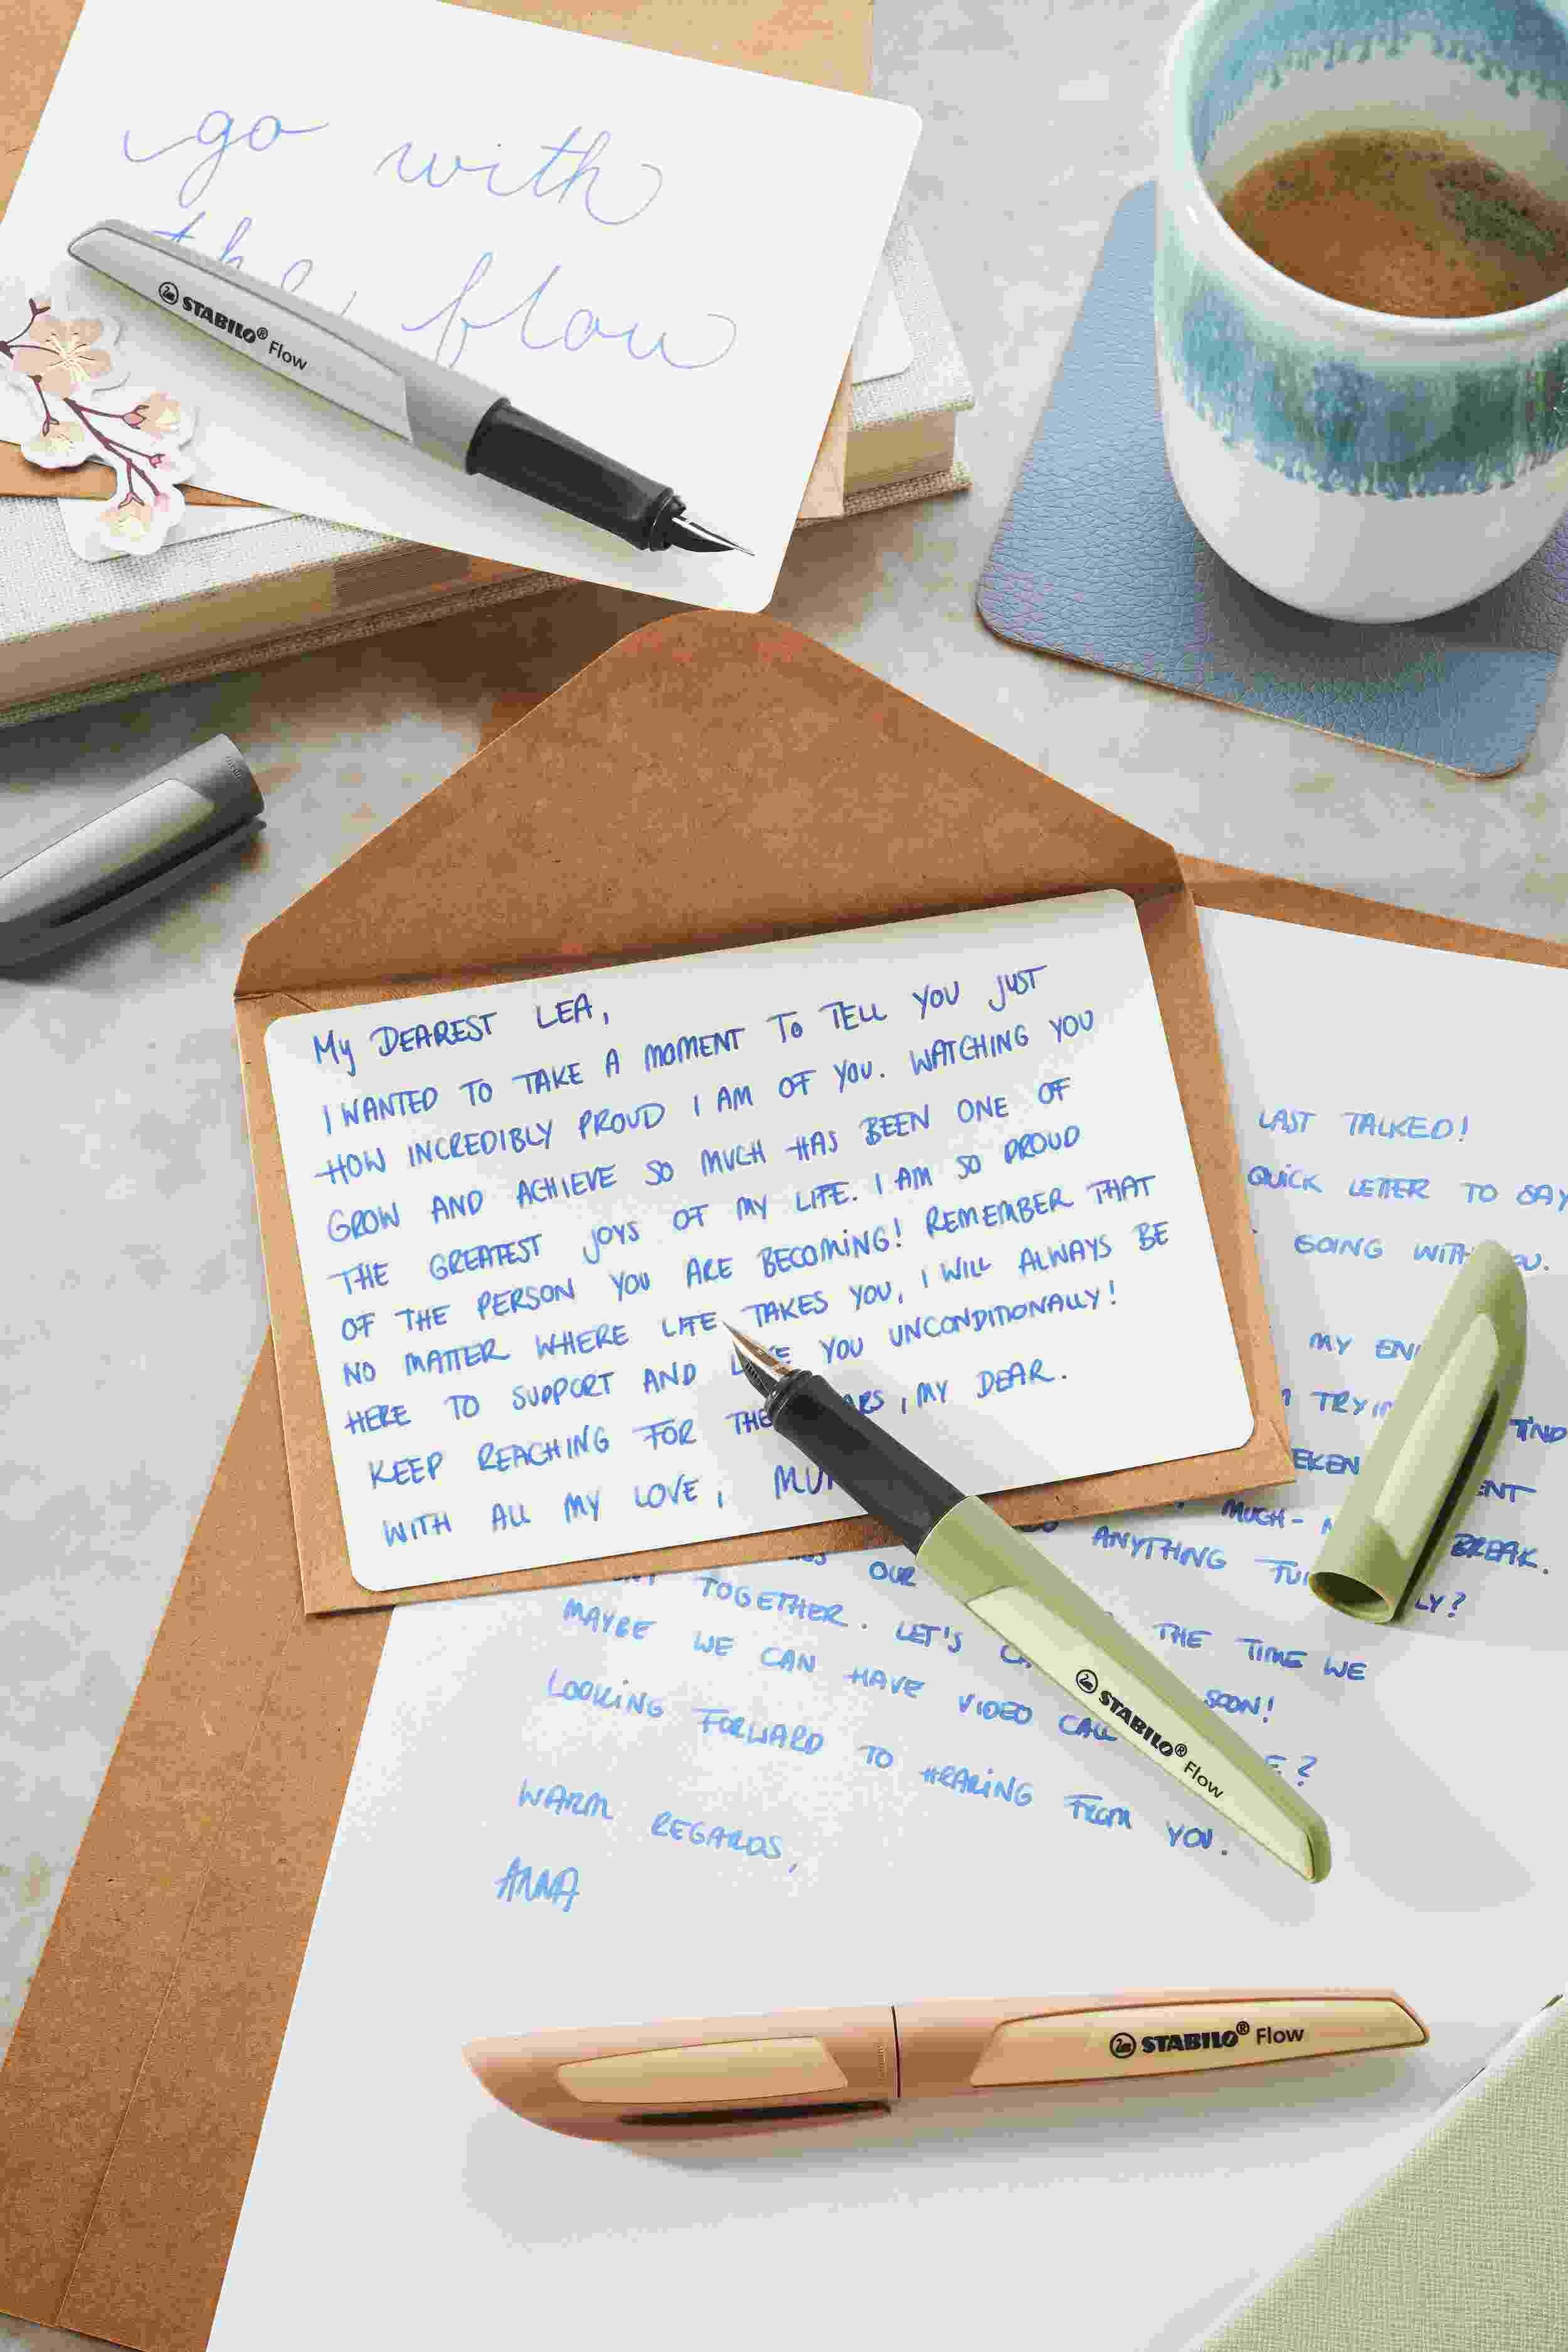 go with
the flow
STABILO® Flow
My DEAREST LEA,
I WANTED TO TAKE A MOMENT TO TELL YOU JUST
HOW INCREDIBLY PROUD I AM OF YOU. WATCHING YOU
GROW AND ACHIEVE SO MUCH HAS BEEN ONE OF
THE GREATEST JOYS OF MY LIFE. I AM SO PROUD
OF THE PERSON YOU ARE BECOMING! REMEMBER THAT
NO MATTER WHERE LIFE TAKES YOU, I WILL ALWAYS BE
HERE TO SUPPORT AND YOU UNCONDITIONALLY!
KEEP REACHING FOR THE , MY DEAR.
WITH ALL MY LOVE,
LAST TALKED!
QUICK LETTER TO SAY
GOING WITH
MY
MUCH- BREAK.
ANYTHING
OUR THE TIME WE
TOGETHER. LET'S SOON!
MAYBE WE CAN HAVE VIDEO CALL ?
LOOKING FORWARD TO HEARING FROM YOU.
WARM REGARDS,
ANNA
STABILO® Flow
STABILO® Flow